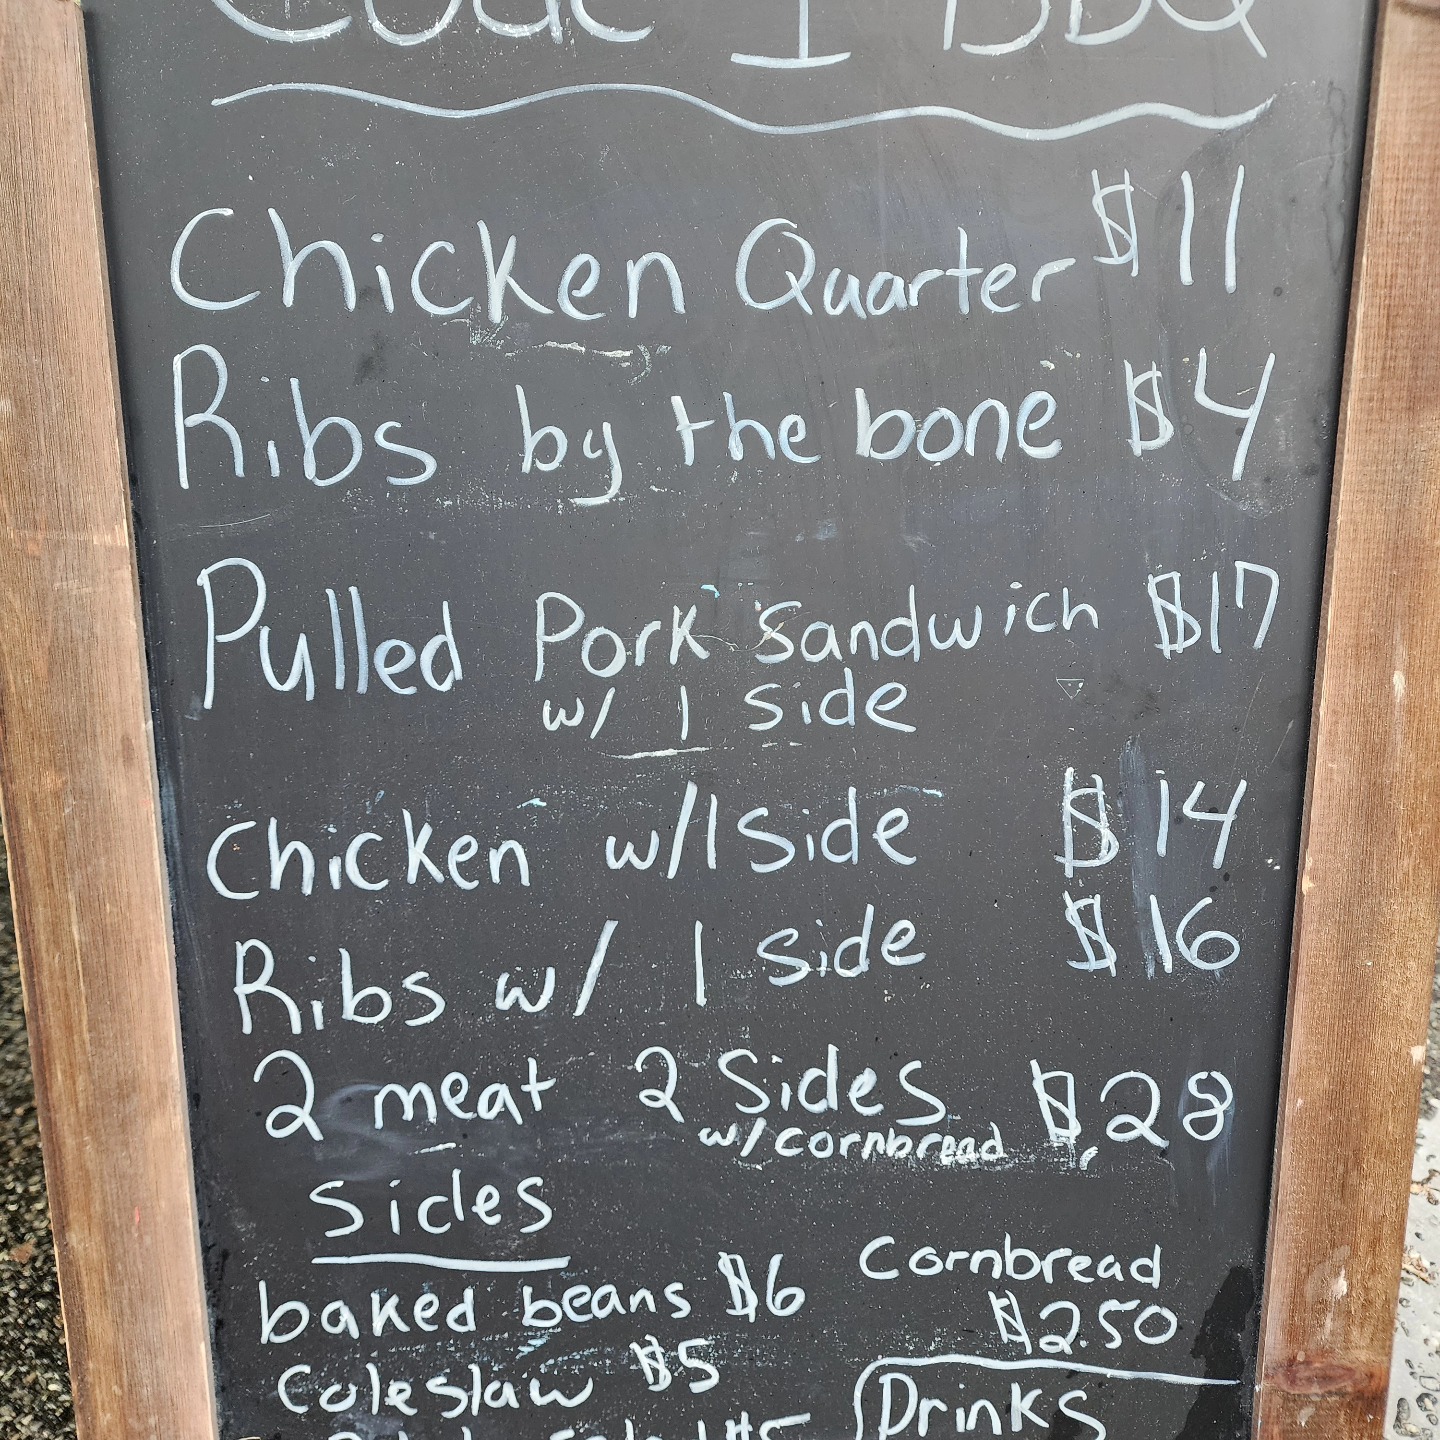 Code 1 BBQ
Chicken Quarter $11
Ribs by the bone $4
Pulled Pork Sandwich $17
w/ 1 side
Chicken w/1 Side $14
Ribs w/ 1 side $16
2 meat 2 Sides $28
w/cornbread
Sides
baked beans $6
Cornbread
$2.50
Coleslaw $5
Drinks